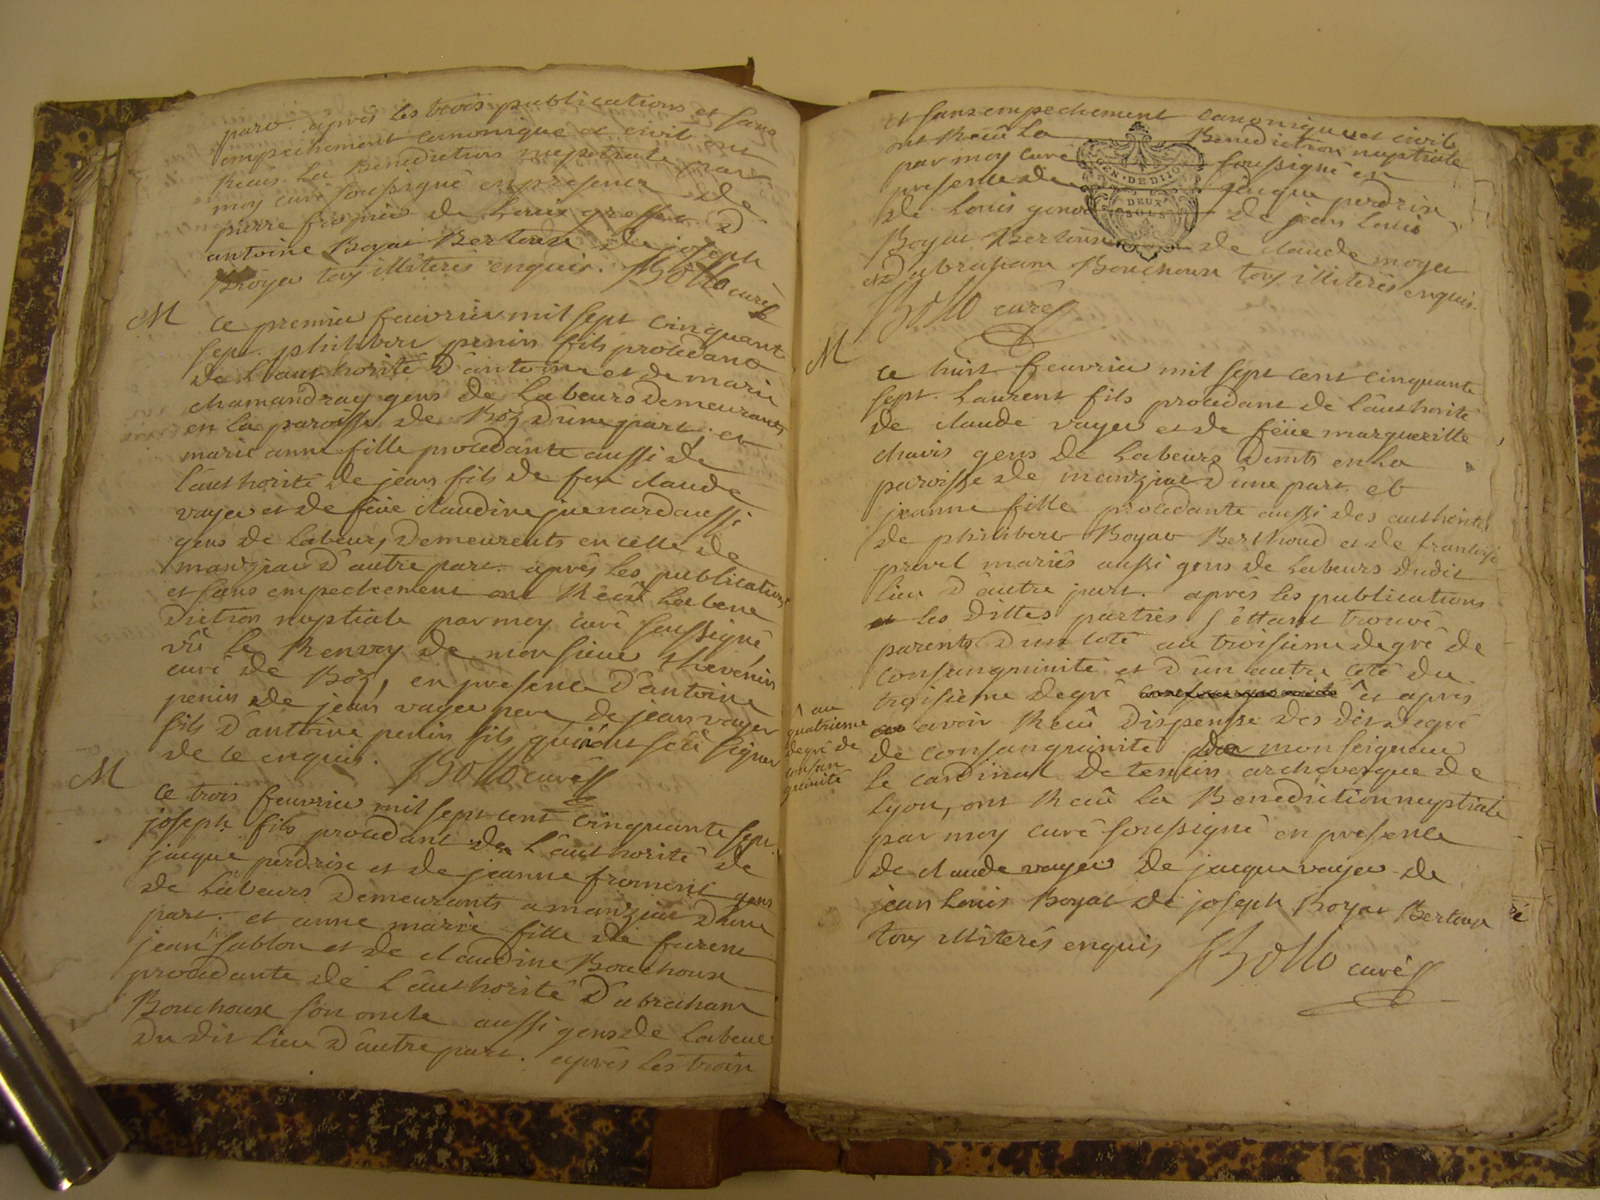 part. après les trois publications et sans
empechement canonique et civil ont
Reçus la Benediction nuptiale par
moy curé soussigné en presence de
pierre de Louis D
antoine Boyat Bertoux de joseph
Royer tous illiterés enquis. Bollo curé
M
Ce premier feuvrier mil sept cinquant
sept. philibert penin fils procedant
de l'authorité D'antoine et de marie
chamandray gens de Labeurs demeurants
en la paroisse de Boz D'une part, et
marie anne fille procedante aussi de
l'authorité de jean fils de feu claude
vayer et de feüe claudine guenard aussi
gens de Labeurs Demeurents en celle de
manziat D'autre part. après les publications
et sans empechement ont Reçu La bene
Diction nuptiale par moy curé soussigné
vû le Renvoy de monsieur thevenin
curé de Boz, en presence D'antoine
penin de jean vayer pere, de jean vayer
fils D'antoine penin fils, qui n'ont sçû signer
de ce enquis. Bollo curé
M
Ce trois feuvrier mil sept cent cinquante sept.
joseph fils procedant de l'authorité de
jacque perdrix et de jeanne froment gens
de Labeurs Demeurants a manziat D'une
part. et anne marie fille de furent
jean sablon et de claudine Bouchoux
procedante de l'authorité D'abraham
Bouchoux son oncle aussi gens de Labeur
Du dit Lieu D'autre part. après Les trois
et sans empechement canonique et civil
ont Reçû La Benediction nuptiale
par moy curé soussigné en
presence de jacque perdrix
de Louis de jean Louis
Boyat Bertoux de claude moyer
et D'abraham Bouchoux tous illiterés enquis.
Bollo curé
GEN. DE DIJON
DEUX
SOLS
M
Ce huit feuvrier mil sept cent cinquante
sept. Laurent fils procedant de l'authorité
de claude vayer et de feüe margueritte
chavis gens de Labeurs Demts en la
paroisse de manziat D'une part et
jeanne fille procedante aussi des authorités
de philibert Boyat Berthoud et de francoise
privel mariés aussi gens de Labeurs dudit
lieu D'autre part. après les publications
et les Dittes parties s'ettant trouvé
parents D'un coté au troisieme degré de
consanguinité et D'un autre coté du
troisieme degré ^ et après
avoir Reçû Dispense des dits degré
de consanguinité de monseigneur
Le cardinal de tencin archevesque de
Lyon, ont Reçû la Benediction nuptiale
par moy curé soussigné en presence
de claude vayer de jacque vayer de
jean Louis Boyat de joseph Boyat Bertoux
tous illiterés enquis Bollo curé
^ au
quatrieme
degré de
consan
guinité